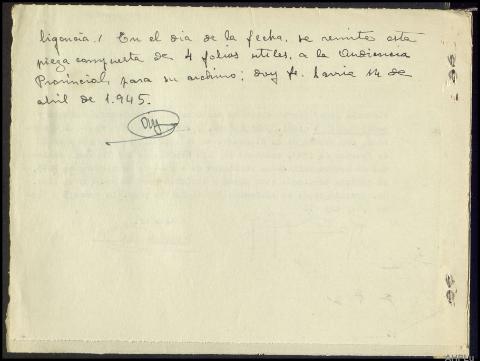 ligencia./ En el dia de la fecha, se remite esta
pieza compuesta de 4 folios utiles, a la Audiencia
Provincial, para su archivo; doy fe. Sarria 14 de
abril de 1.945.